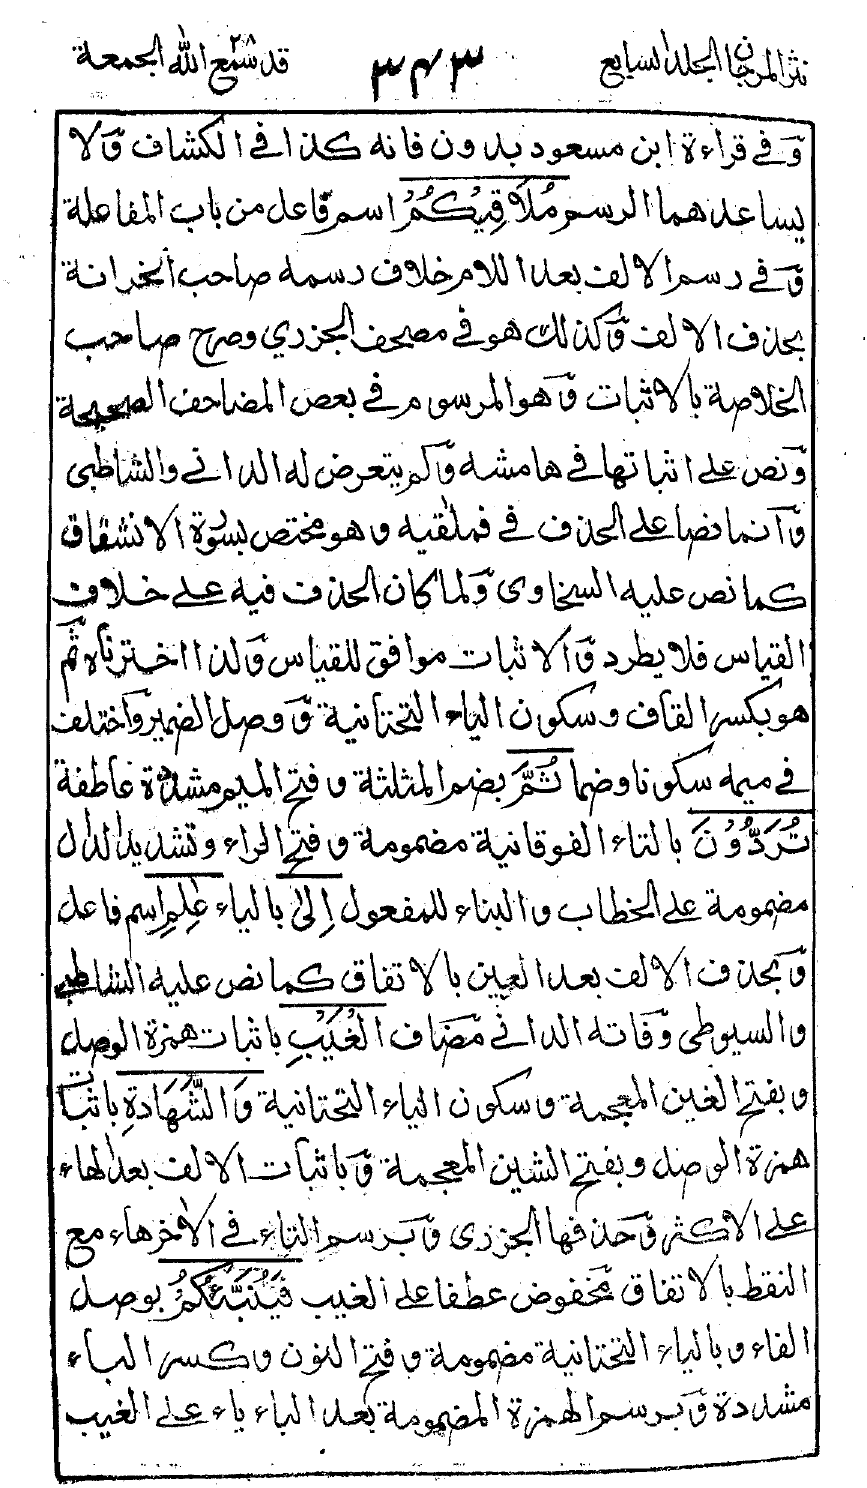 نثر المرجان الجلد السابع ٣٤٣ قد سمع الله ٢٨ الجمعة
وفي قراءة ابن مسعود بدون فانه كذا في الكشاف ولا
يساعدهما الرسم مُلَاقِيكُمْ اسم فاعل من باب المفاعلة
وفي رسم الالف بعد اللام خلاف رسمه صاحب الخزانة
بحذف الالف وكذلك هو في مصحف الجزري وصرح صاحب
الخلاصة بالاثبات وهو المرسوم في بعض المصاحف الصحيحة
ونص على اثباتها في هامشه ولم يتعرض له الداني والشاطبي
وانما نصا على الحذف في فملقيه وهو مختص بسورة الانشقاق
كما نص عليه السخاوى ولما كان الحذف فيه على خلاف
القياس فلا يطرد والاثبات موافق للقياس ولذا اخترناه ثم
هو بكسر القاف وسكون الياء التحتانية ووصل الضمير واختلف
في ميمه سكونا وضما ثُمَّ بضم المثلثة وفتح الميم مشددة عاطفة
تُرَدُّوْنَ بالتاء الفوقانية مضمومة وفتح الراء وتشديد الدال
مضمومة على الخطاب والبناء للمفعول اِلىٰ بالياء عٰلِمِ اسم فاعل
وبحذف الالف بعد العين بالاتفاق كما نص عليه الشاطبي
والسيوطي وفاته الداني مضاف الْغَيْبِ باثبات همزة الوصل
وبفتح الغين المعجمة وسكون الياء التحتانية وَالشَّهَادَةِ باثبات
همزة الوصل وبفتح الشين المعجمة وباثبات الالف بعد الهاء
على الاكثر وحذفها الجزرى وبرسم التاء في الأخر هاء مع
النقط بالاتفاق مخفوض عطفا على الغيب فَيُنَبِّئُكُمْ بوصل
الفاء وبالياء التحتانية مضمومة وفتح النون وكسر الباء
مشددة وبرسم الهمزة المضمومة بعد الباء ياء على الغيب